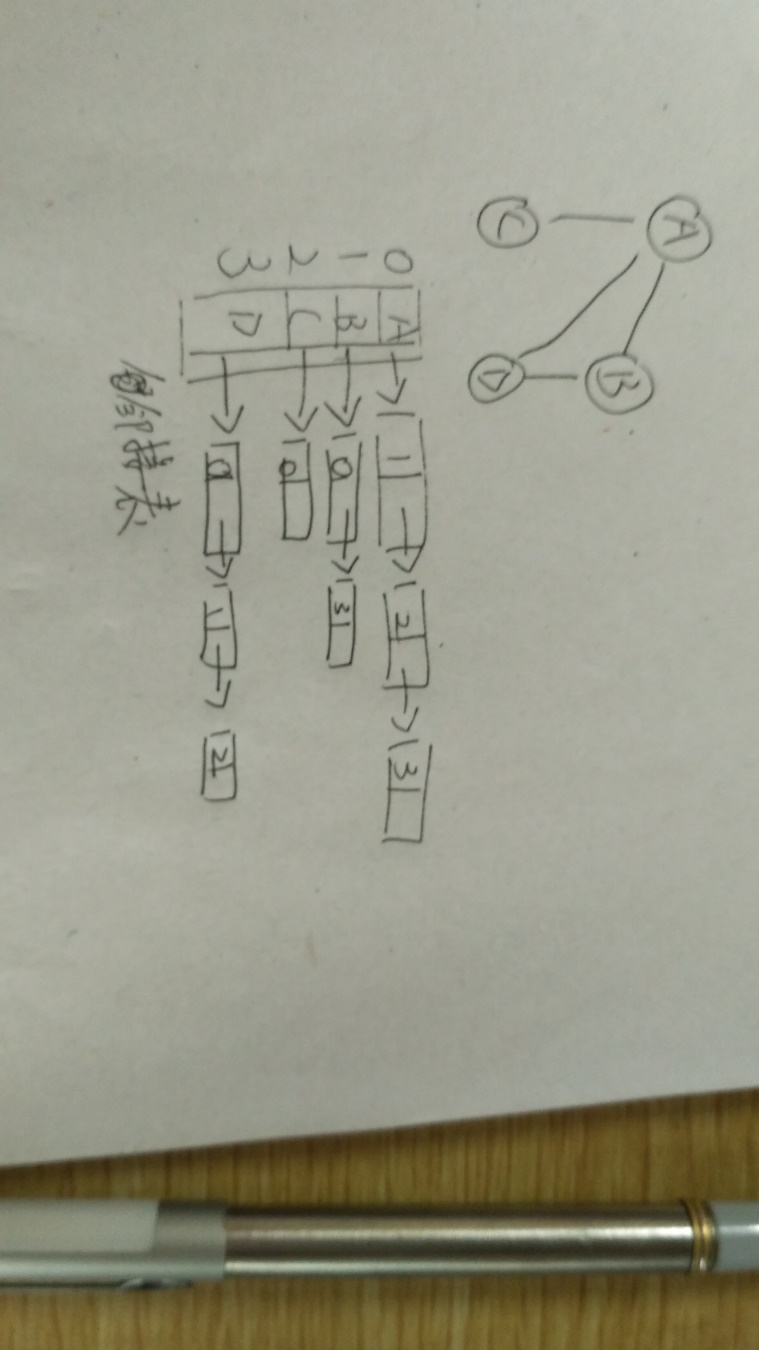 A
B
C D
0 A → 1 → 2 → 3
1 B → 0 → 3
2 C → 0
3 D → 0 → 1 → 2
邻接表